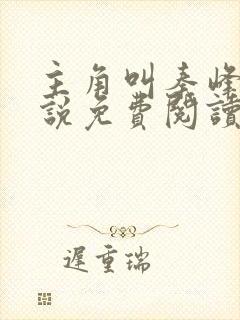 主角叫秦峰
說免費閱讀
遲重瑞